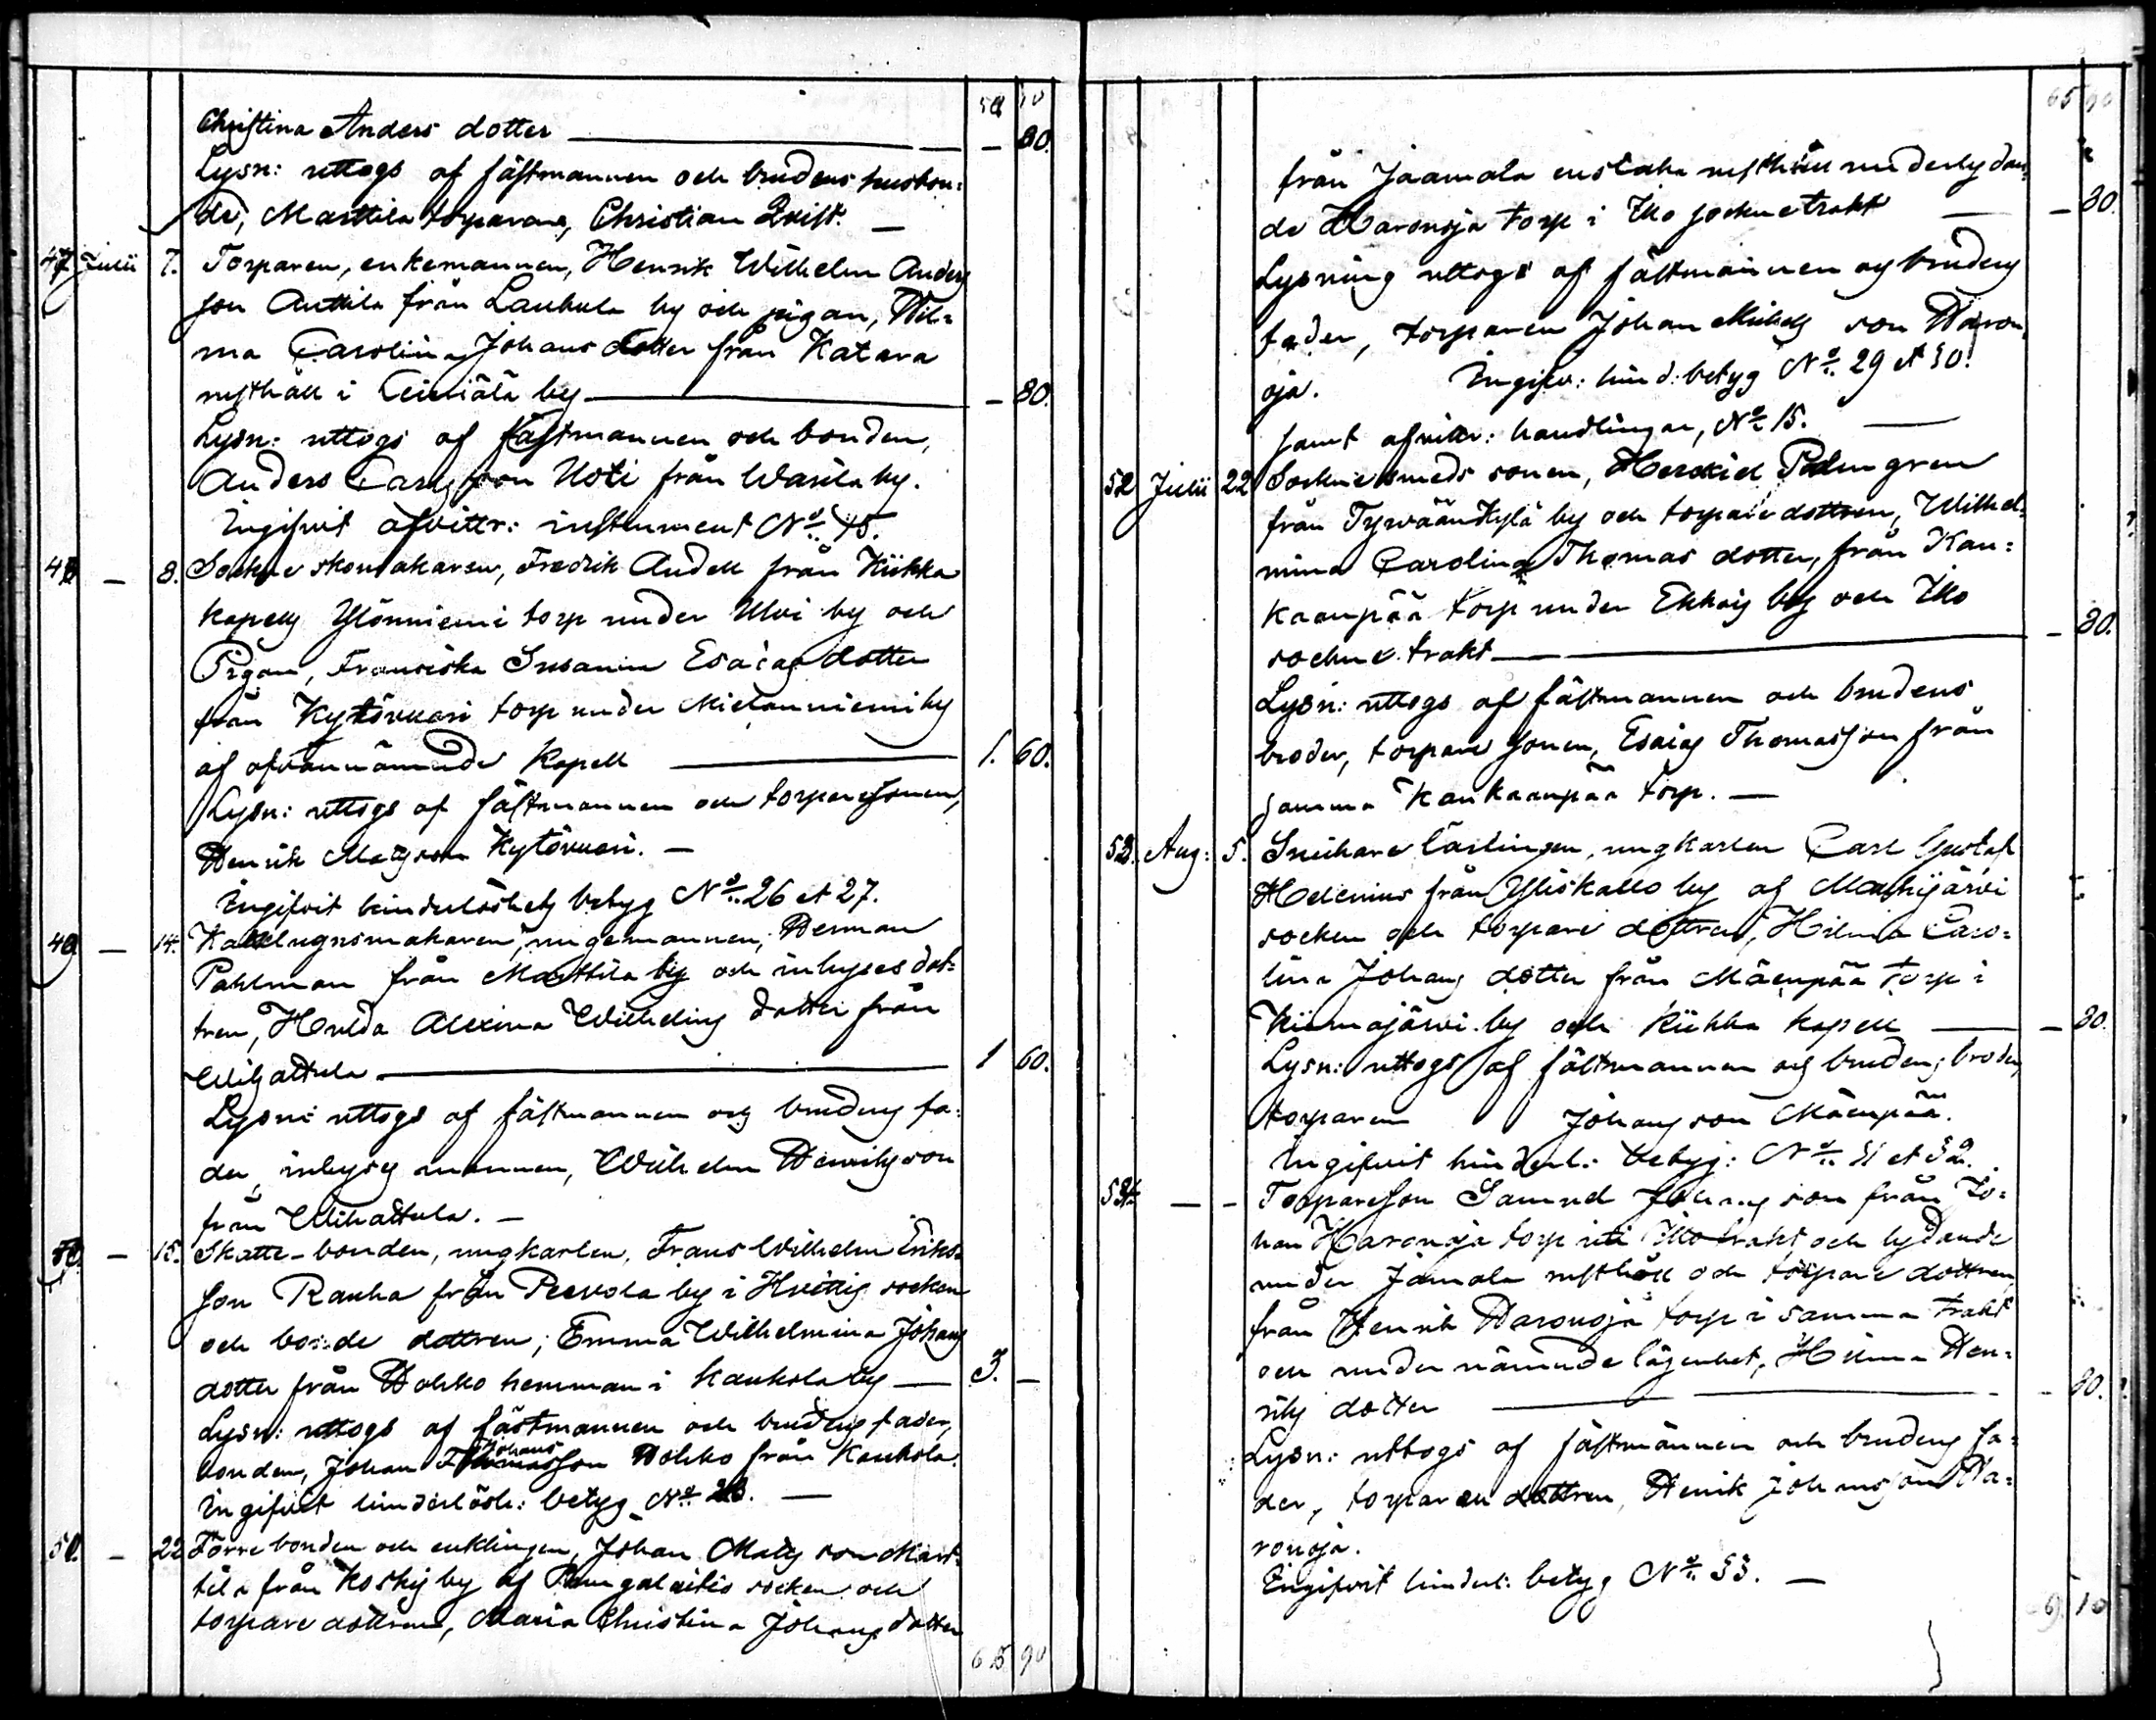 58 10
Christina Anders dotter — — 80.
Lysn: uttogs af fästmannen och brudens husbon:
de, Marttila torparena, Christian Qvist. —
47 Julii 7. Torparen, enkemannen, Henrik Wilhelm Anders
son Anttila från Laukula by och pigan, Wil:
ma Carolina Johans dotter från Katara
rusthåll i by — — 80.
Lysn: uttogs af fästmannen och bonden,
Anders Carlsson Uoti från Warila by.
Ingifvit afvittr: instrument No 45.
48 — 8. Sockne skomakaren, Fredrik Andell från Kiikka
kapells Ylönniemi torp under Ulvi by och
Pigan, Fransiska Susanna Esaias dotter
från Kytövuori torp under Mielauniemi by
af ofvannämnde Kapell — 1. 60.
Lysn: uttogs af fästmannen och torparesonen,
Henrik Matsson Kytövuori. —
Ingifvit hinderlöshets betyg No 26 et 27.
49 — 14. Kakelugnsmakaren, ungemannen, Herman
Pahlman från Marttila by och inhyses dot:
tren, Hulda Alexina Wilhelms dotter från
Wihattula — 1 60.
Lysn: uttogs af fästmannen och brudens fa:
der, inhyses mannen, Wilhelm Henriksson
från Wihattula. —
50. — 15. Skatte-bonden, ungkarlen, Frans Wilhelm Eriks
son Rauha från Peevola by i Hvittis socken
och bonde dottren, Emma Wilhelmina Johans
dotter från Wohko hemman i Kaukola by — 3. —
Lysn: uttogs af fästmannen och brudens fader,
Johans
bonden, Johan Thomasson Wohko från Kaukola.
Ingifvit hinderlösh: betyg No 28. —
51. — 22 Förre bonden och enklingen, Johan Mats son Mart:
tila från Koskis by af Pungalaitio socken och
torpare dottren, Maria Christina Johans dotter
65 90
65 90
från Jaamala enstaka rusthåll underlydan:
de Haronoja torp i Illo socknetrakt — — 80.
Lysning uttogs af fästmannen och brudens
fader, torparen Johan Mickels son Haron
oja. Ingifv: hind: betyg No 29 et 30.
samt afvittr: handlingar, No 15. —
52 Julii 22 Sockne smeds sonen, Heskiel Palmgren
från Tyrväänkylä by och torpare dottren, Wilhel:
mina Carolina Thomas dotter, från Kan:
kaanpää torp under Ekkois by och Illo
sockne trakt — — 80.
Lysn: uttogs af fästmannen och brudens
broder, torpare sonen, Esaias Thomasson från
samma Kankaanpää torp. —
53. Aug: 5. Snickare lärlingen, ungkarlen Carl Gustaf
Helenius från Yliskallo by af Mouhijärvi
socken och torpare dottren, Hilma Caro:
lina Johans dotter från Mäenpää torp i
Kiimajärvi by och Kiikka kapell — — 80.
Lysn: uttogs af fästmannen och brudens broder,
torparen Johansson Mäenpää.
Ingifvit hinderl: betyg: No 31 et 32.
54 — — Torpareson Samuel Johans son från Jo:
han Haronoja torp uti Illo trakt och lydande
under Jamala rusthåll och torpare dottren
från Henrik Haronoja torp i samma trakt
och under nämnde lägenhet, Hilma Hen:
riks dotter — — 80.
Lysn: uttogs af fästmannen och brudens fa:
der, torparen dottren, Henrik Johansson Ha:
ronoja.
Ingifvit hinderl: betyg No 33. —
69 10